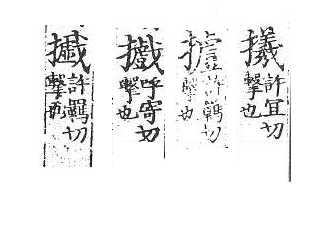 許宜切
擊也
許羈切
擊也
呼寄切
擊也
許羈切
擊也